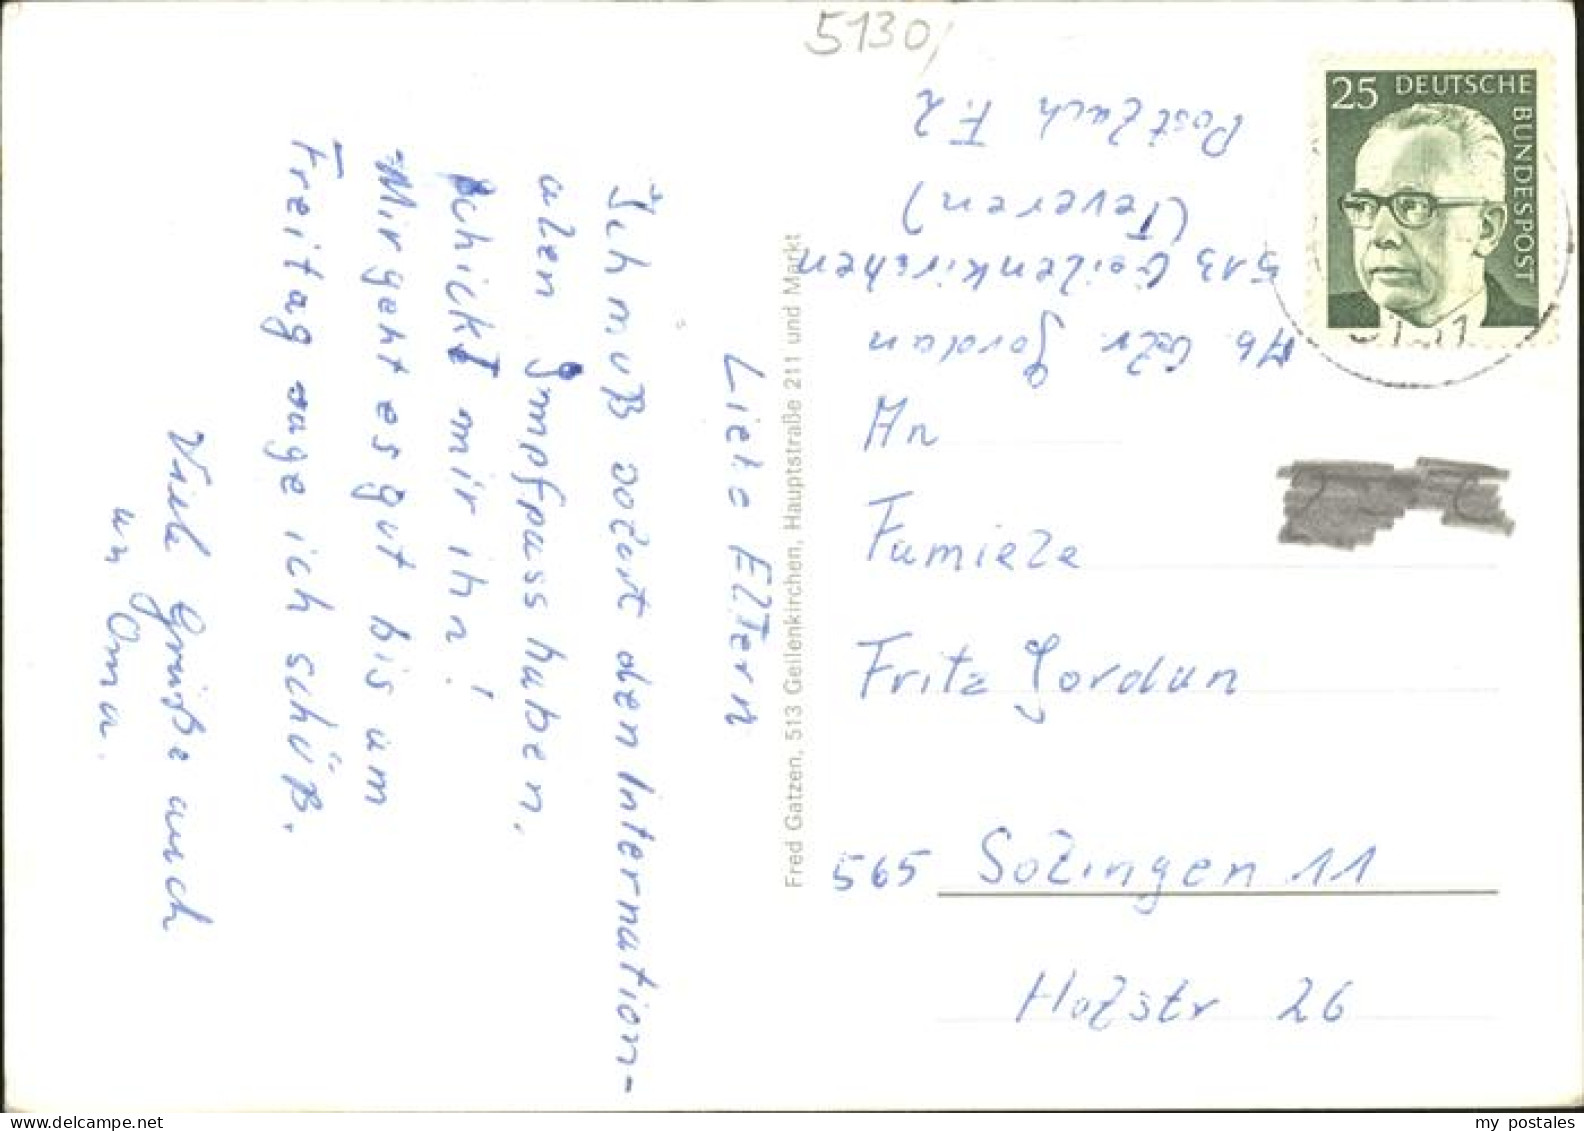 5130
25 DEUTSCHE
BUNDESPOST
Postfach F.2
(Teveren)
513 Geilenkirchen
Ab. Gefr. Jordan
An
Familie
Fritz Jordan
565 Solingen 11
Holzstr 26
Fred Gatzen, 513 Geilenkirchen, Hauptstraße 211 und Markt
Liebe Eltern
Ich muß sofort den Internation-
alen Impfpass haben,
schickt mir ihn!
Mir geht es gut bis am
Freitag sage ich schüß.
Viele Grüße auch
an Oma.
my postales